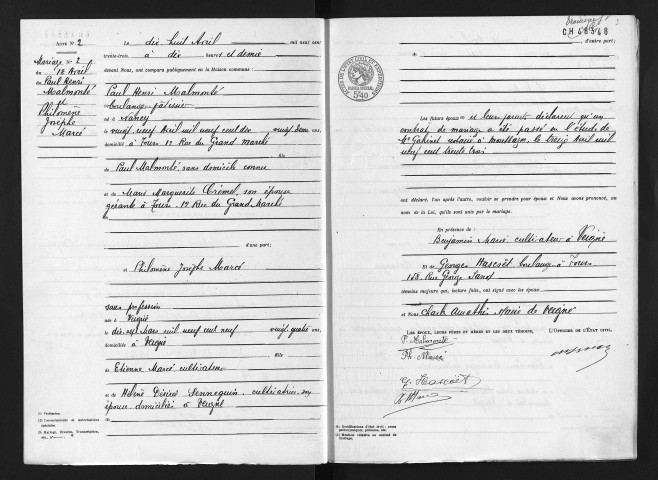 ACTE N° 2
Mariage N° 2
du 18 Avril
Paul Henri
Malmonté
et
Philomène
Josèphe
Marcé
Le dix huit Avril mil neuf cent
trente-trois à dix heures et demie
devant Nous, ont comparu publiquement en la Maison commune :
Paul Henri Malmonté
boulanger pâtissier
né à Nancy
le vingt neuf Avril mil neuf cent dix vingt deux ans,
domicilié à Tours 17 Rue du Grand marché
fils
de Paul Malmonté, sans domicile connu
et de Marie Marguerite Crémel, son épouse
gérante à Tours, 17 Rue du Grand Marché
d'une part;
et Philomène Josèphe Marcé
sans profession
née à Vergné
le dix sept Mars mil neuf cent neuf vingt quatre ans,
domiciliée à Vergné
fille
de Etienne Marcé cultivateur
et de Hélène Désirée Sennequin, cultivatrice, son
épouse domiciliés à Vergné
(1) Profession.
(3) Mariage, Divorce, Transcription,
CH48348
d'autre part;
540
Les futurs époux et leurs parents déclarent qu'un
contrat de mariage a été passé en l'étude de
Me notaire à le treize Avril mil
neuf cent trente trois
ont déclaré, l'un après l'autre, vouloir se prendre pour époux et Nous avons prononcé, au
nom de la Loi, qu'ils sont unis par le mariage.
En présence de :
Benjamin Marcé cultivateur à Vergné
Et de Georges Hascoët boulanger à Tours
158 Rue George Sand
témoins majeurs qui, lecture faite, ont signé avec les époux
et Nous Maire de Vergné
LES ÉPOUX, LEURS PÈRES ET MÈRES ET LES DEUX TÉMOINS, L'OFFICIER DE L'ÉTAT CIVIL,
P. Malmonté
Ph. Marcé
G. Hascoët